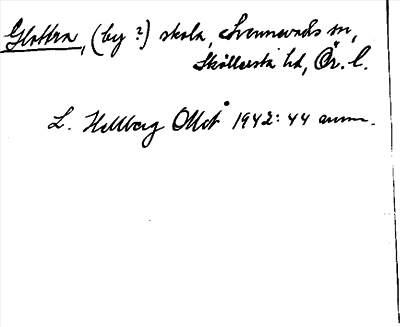 Glottra, (by ?) skola, Svennevads sn,
Sköllersta hd, Ör. l.
L. Hellberg OMot 1942: 44 anm.